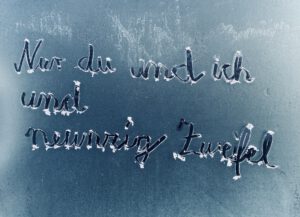 Nur du und ich
und
neunzig Zweifel